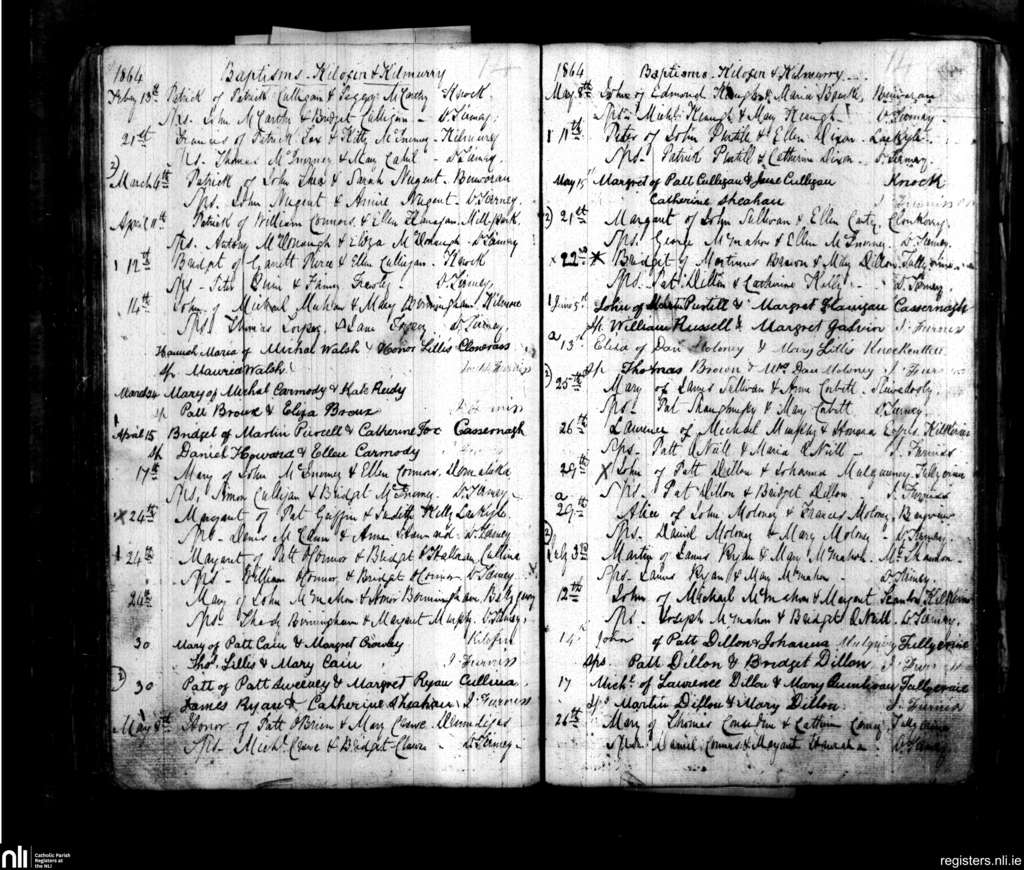 1864 Baptisms - Kilofin & Kilmurry 14
Feby 13th Patrick of Patrick Culligan & Peggy McCarthy Knock
Sps. John McCarthy & Bridget Culligan - D. Tierney
21st Francis of Patrick Fox & Kitty McInerney - Kilmurry
Sps. Thomas McInerney & Mary Cahil - D. Tierney
2) March 4th Patrick of John Shea & Sarah Nugent - Benvoran
Sps. John Nugent & Nugent - D. Tierney
April Patrick of William Connors & Ellen Flanagan - Millpark
Sps. Antony McDonaugh & Eliza McDonaugh - D. Tierney
1 12th Bridget of Garrett Pierce & Ellen Culligan - Knock
Sps - Quin & D. Tierney
14th John of Michael & Mary Bermingham Kilmore
Sps. Thomas & Jane D. Tierney
Hannah Maria of Michal Walsh & Honor Lillis Clonerass
Sp Maurice Walsh J. Furniss
March 24 Mary of Michal Carmody & Kate Reidy
Sp Patt Broux & Eliza Broux J. Furniss
1 April 15 Bridget of Martin Purcell & Catherine Fox Cassernagh
Sp Daniel Howard & Ellen Carmody
17th Mary of John McInerney & Ellen Connors
Sps. Culligan & Bridget McInerney - D. Tierney
x 24th Margaret of Pat Griffin & Judith Kelly Lackyle
Sps - Denis McCann & Anne D. Tierney
1 24th Margaret of Patt OConnor & Bridget OHalloran Cullina
Sps - William OConnor & Bridget OConnor D. Tierney
24th Mary of John McMahon & Honor Bermingham
Sps. Bermingham & Margaret Murphy - D. Tierney
30 Mary of Patt Cain & Margret Crowley Kilofin
Tho. Lillis & Mary Cain J. Furniss
2) 30 Patt of Patt Sweeney & Margret Ryan Cullina
James Ryan & Catherine Sheahan J. Furniss
May 8th Honor of Patt OBrien & Mary Crowe
Sps. Michl Crowe & Bridget D. Tierney
1864 Baptisms - Kilofin & Kilmurry 14
May 8th of Edmond Keugh & Maria Benvoran
Sps - Michl Keugh & Mary Keugh D. Tierney
1 11th Peter of John Purtill & Ellen Dixon - Lackyle
Sps. Patrick Purtill & Catherine Dixon - D. Tierney
May 15 Margret of Patt Culligan & Jane Culligan Knock
Catherine Sheahan J. Furniss
2) 21st Margaret of John Sullivan & Ellen Carty Clonkerry
Sps. George McMahon & Ellen McInerney - D. Tierney
x 22nd Bridget of Mortimer Brown & Mary Dillon Tullycrine
Sps. Pat Dillon & Catherine D. Tierney
1 June 5th John of Martin Purtill & Margret Flanigan Cassernagh
Sp William Russell & Margret Galvin J. Furniss
a 13th Eliza of Dan Moloney & Mary Lillis
2) Sp Thomas Brown & Mrs Dan Moloney J. Furniss
25th Mary of James Sullivan & Anne Corbett
Sps - Pat Shaughnessy & Mary Corbett D. Tierney
26th Laurence of Michael Murphy & Honora
Sps. Patt ONeill & Maria ONeill - J. Furniss
29th x John of Patt Dillon & Johanna Mulqueeney Tullycrine
Sps - Pat Dillon & Bridget Dillon J. Furniss
a 29th Alice of John Molony & Frances Molony
2) Sps. Daniel Molony & Mary Molony - D. Tierney
July 3rd Martin of James Ryan & Mary McMahon - Mt Shannon
Sps - James Ryan & Mary McMahon - D. Tierney
12th John of Michael McMahon & Margaret Scanlan
Sps. Joseph McMahon & Bridget ONeill D. Tierney
14 John of Patt Dillon & Johanna Mulquiny Tullycrine
Sps. Patt Dillon & Bridget Dillon J. Furniss
17 Michl of Lawrence Dillon & Mary Tullycrine
Sps Martin Dillon & Mary Dillon J. Furniss
26th Mary of Thomas Considine & Catherine
Sps. Daniel Connors & Margaret D. Tierney
nli
Catholic Parish
Registers at
the NLI
registers.nli.ie